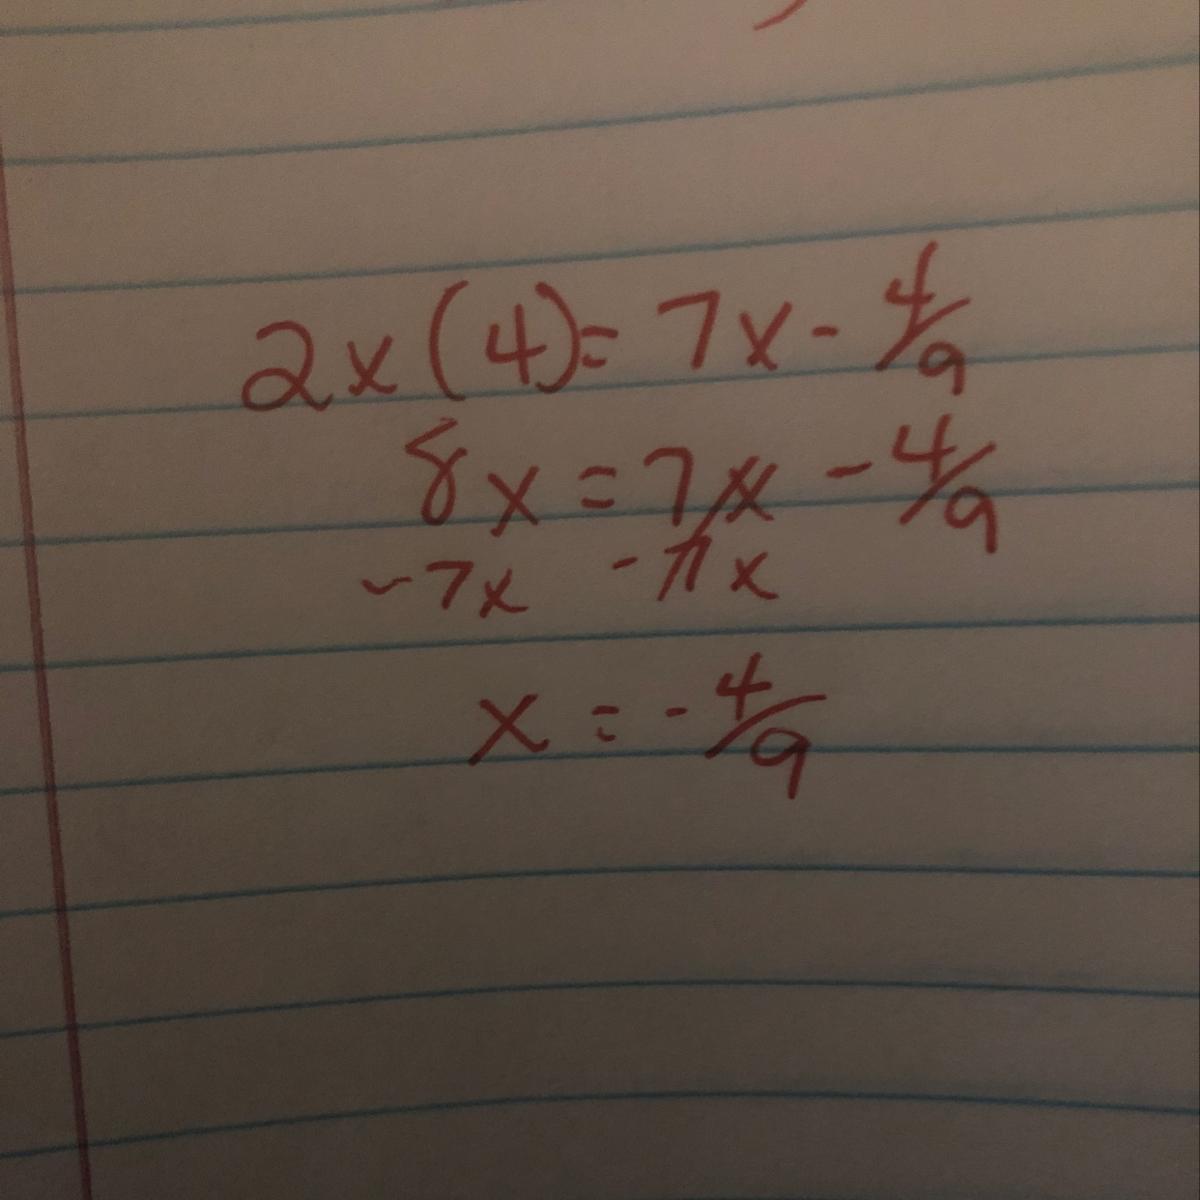 2x(4)= 7x - 4/9
8x = 7x - 4/9
-7x -7x
x = - 4/9